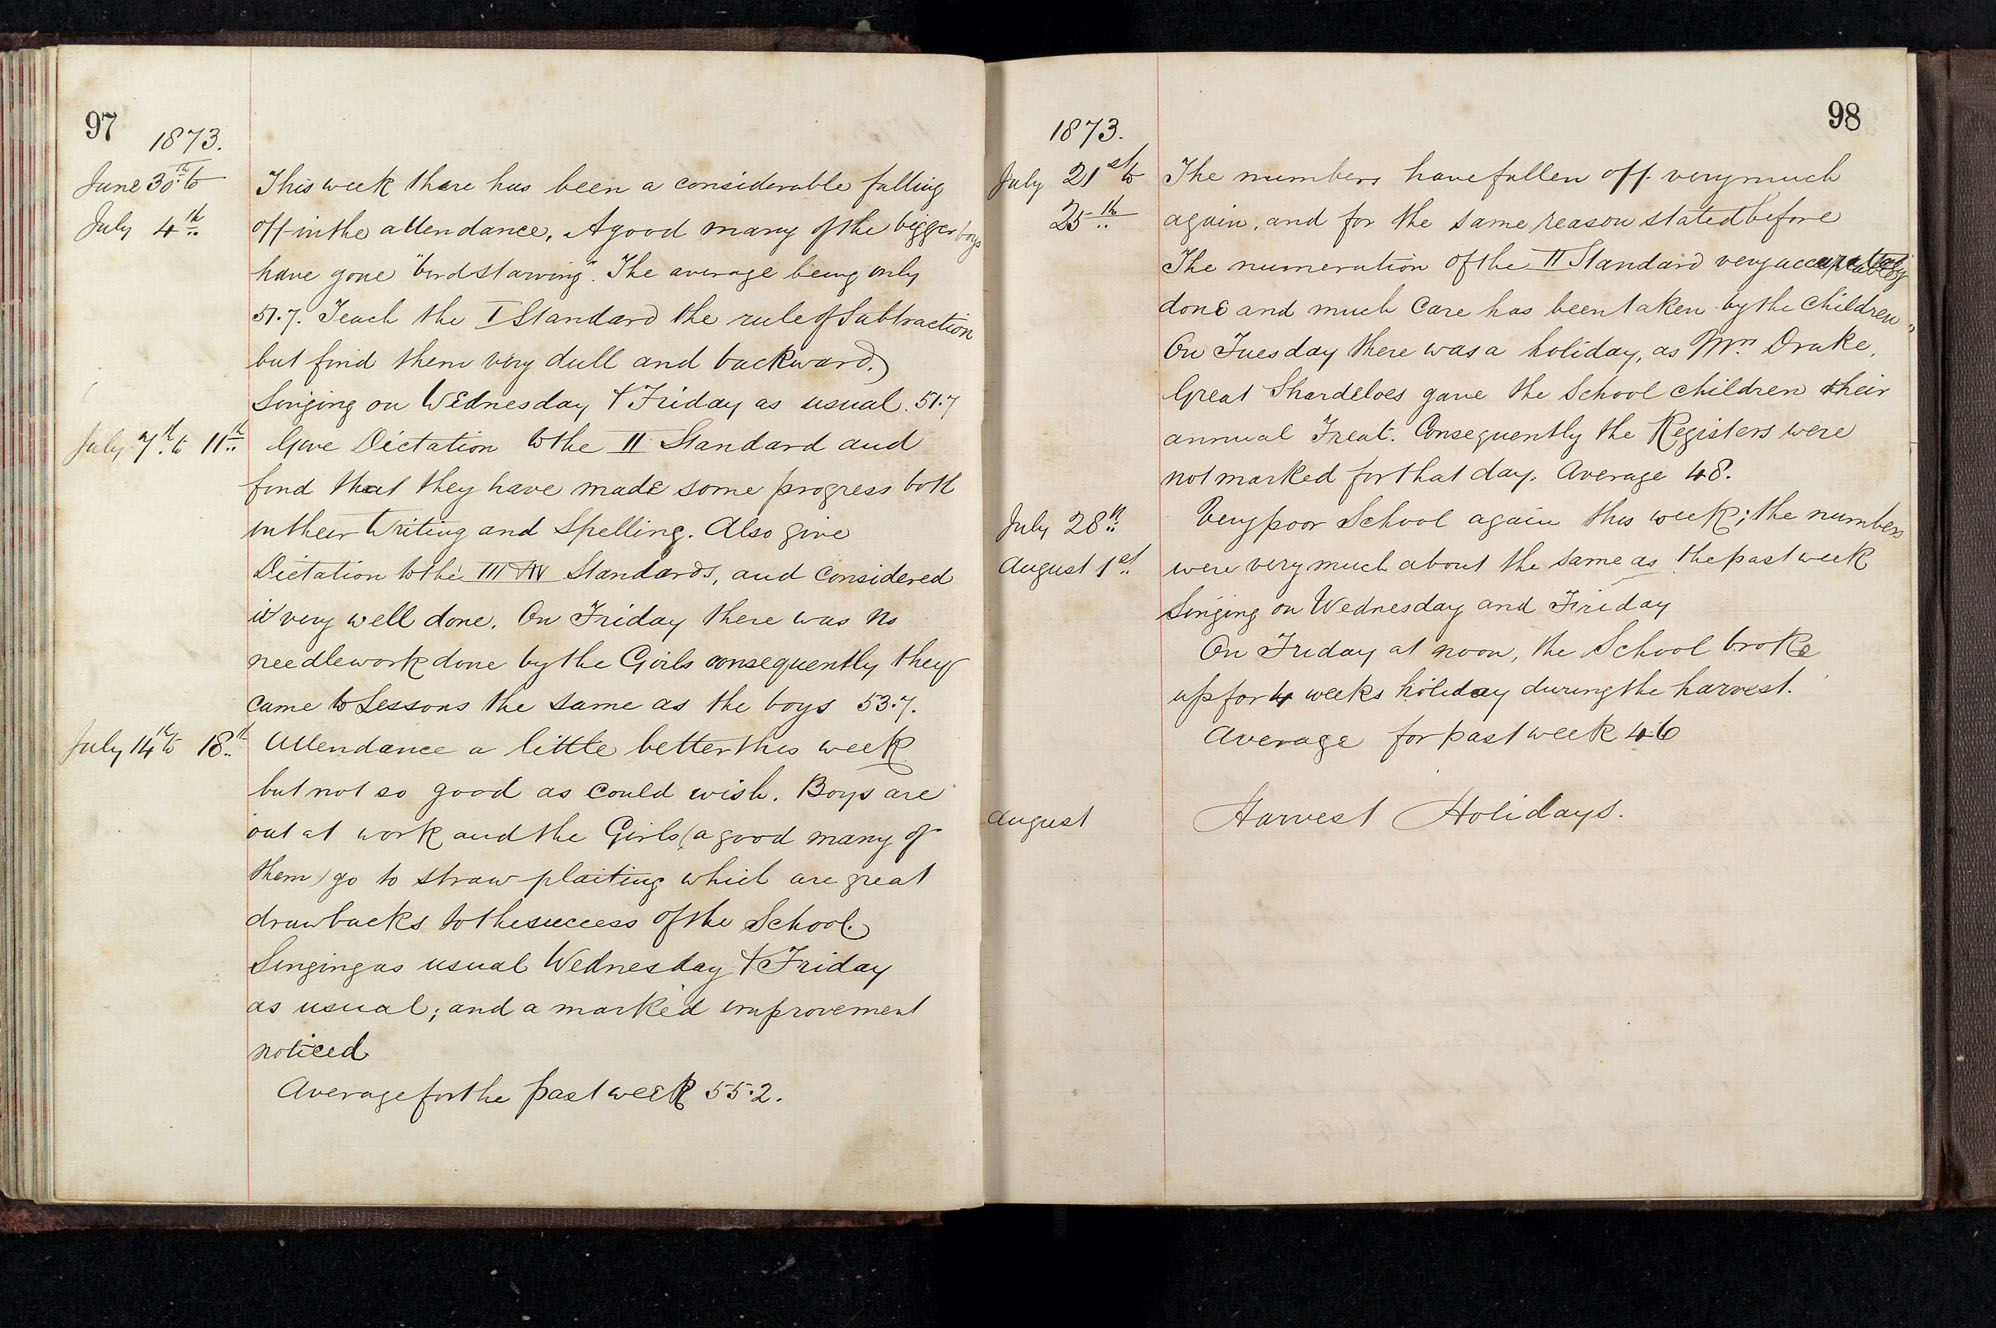 97
1873.
June 30th to This week there has been a considerable falling
July 4th off in the attendance, A good many of the bigger boys
have gone "bird starving". The average being only
51.7. Teach the I Standard the rule of Subtraction
but find them very dull and backward.
Singing on Wednesday & Friday as usual. 51.7
July 7th to 11th Gave Dictation to the II Standard and
find that they have made some progress both
in their Writing and Spelling. Also give
Dictation to the III & IV Standards, and considered
it very well done. On Friday there was no
needlework done by the Girls consequently they
came to Lessons the same as the boys 53.7.
July 14th to 18th Attendance a little better this week
but not so good as could wish. Boys are
out at work and the Girls (a good many of
them) go to straw plaiting which are great
drawbacks to the success of the School.
Singing as usual Wednesday & Friday
as usual; and a marked improvement
noticed
Average for the past week 55.2.
98
1873.
July 21st to The numbers have fallen off very much
25th again, and for the same reason stated before
The numeration of the II Standard very
done and much care has been taken by the children
On Tuesday there was a holiday, as Mrs Drake,
Great Shardeloes gave the School children their
annual Treat. Consequently the Registers were
not marked for that day. Average 48.
July 28th Very poor School again this week; the numbers
August 1st were very much about the same as the past week
Singing on Wednesday and Friday
On Friday at noon, the School broke
up for 4 weeks holiday during the harvest.
Average for past week 46
August Harvest Holidays.